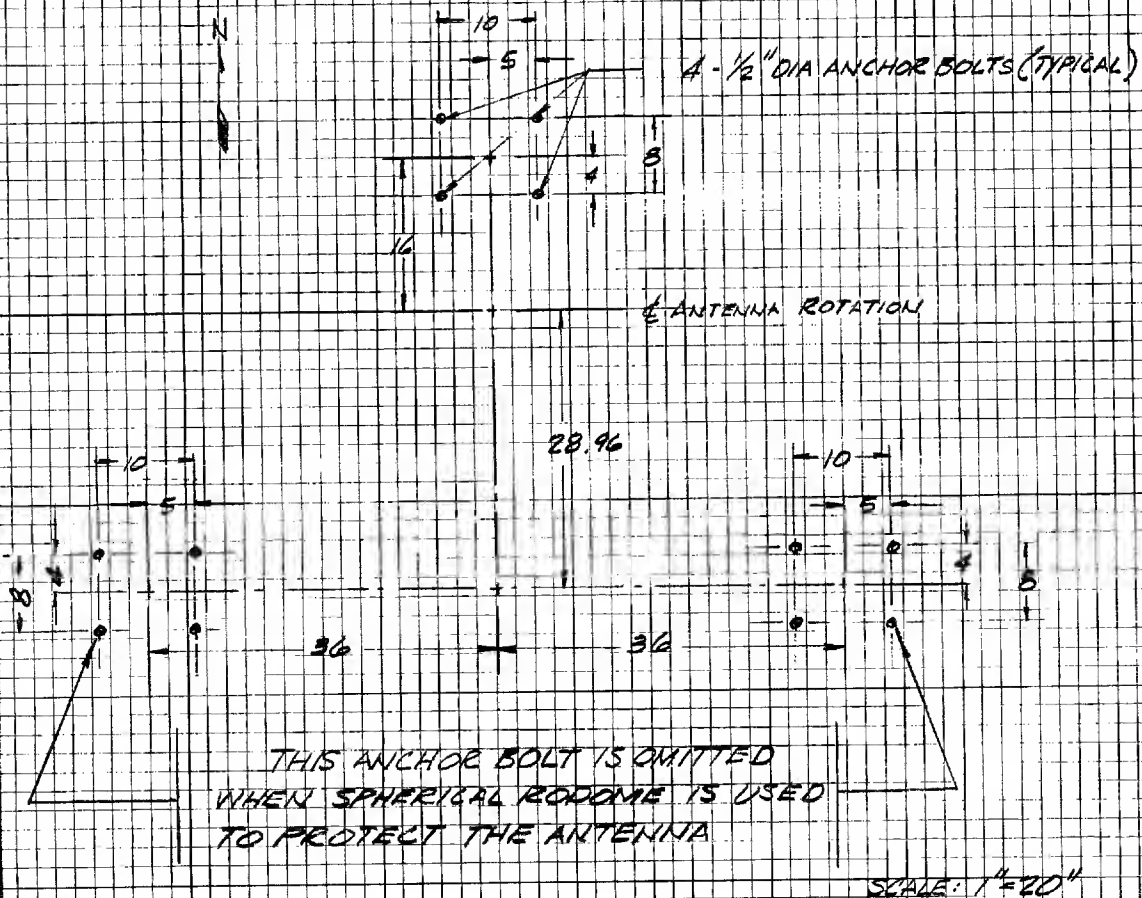 N
10
5
4 - 1/2" DIA ANCHOR BOLTS (TYPICAL)
8
4
16
℄ ANTENNA ROTATION
28.96
10
5
10
5
4
8
4
8
36
36
THIS ANCHOR BOLT IS OMITTED
WHEN SPHERICAL RODOME IS USED
TO PROTECT THE ANTENNA
SCALE: 1"=20"